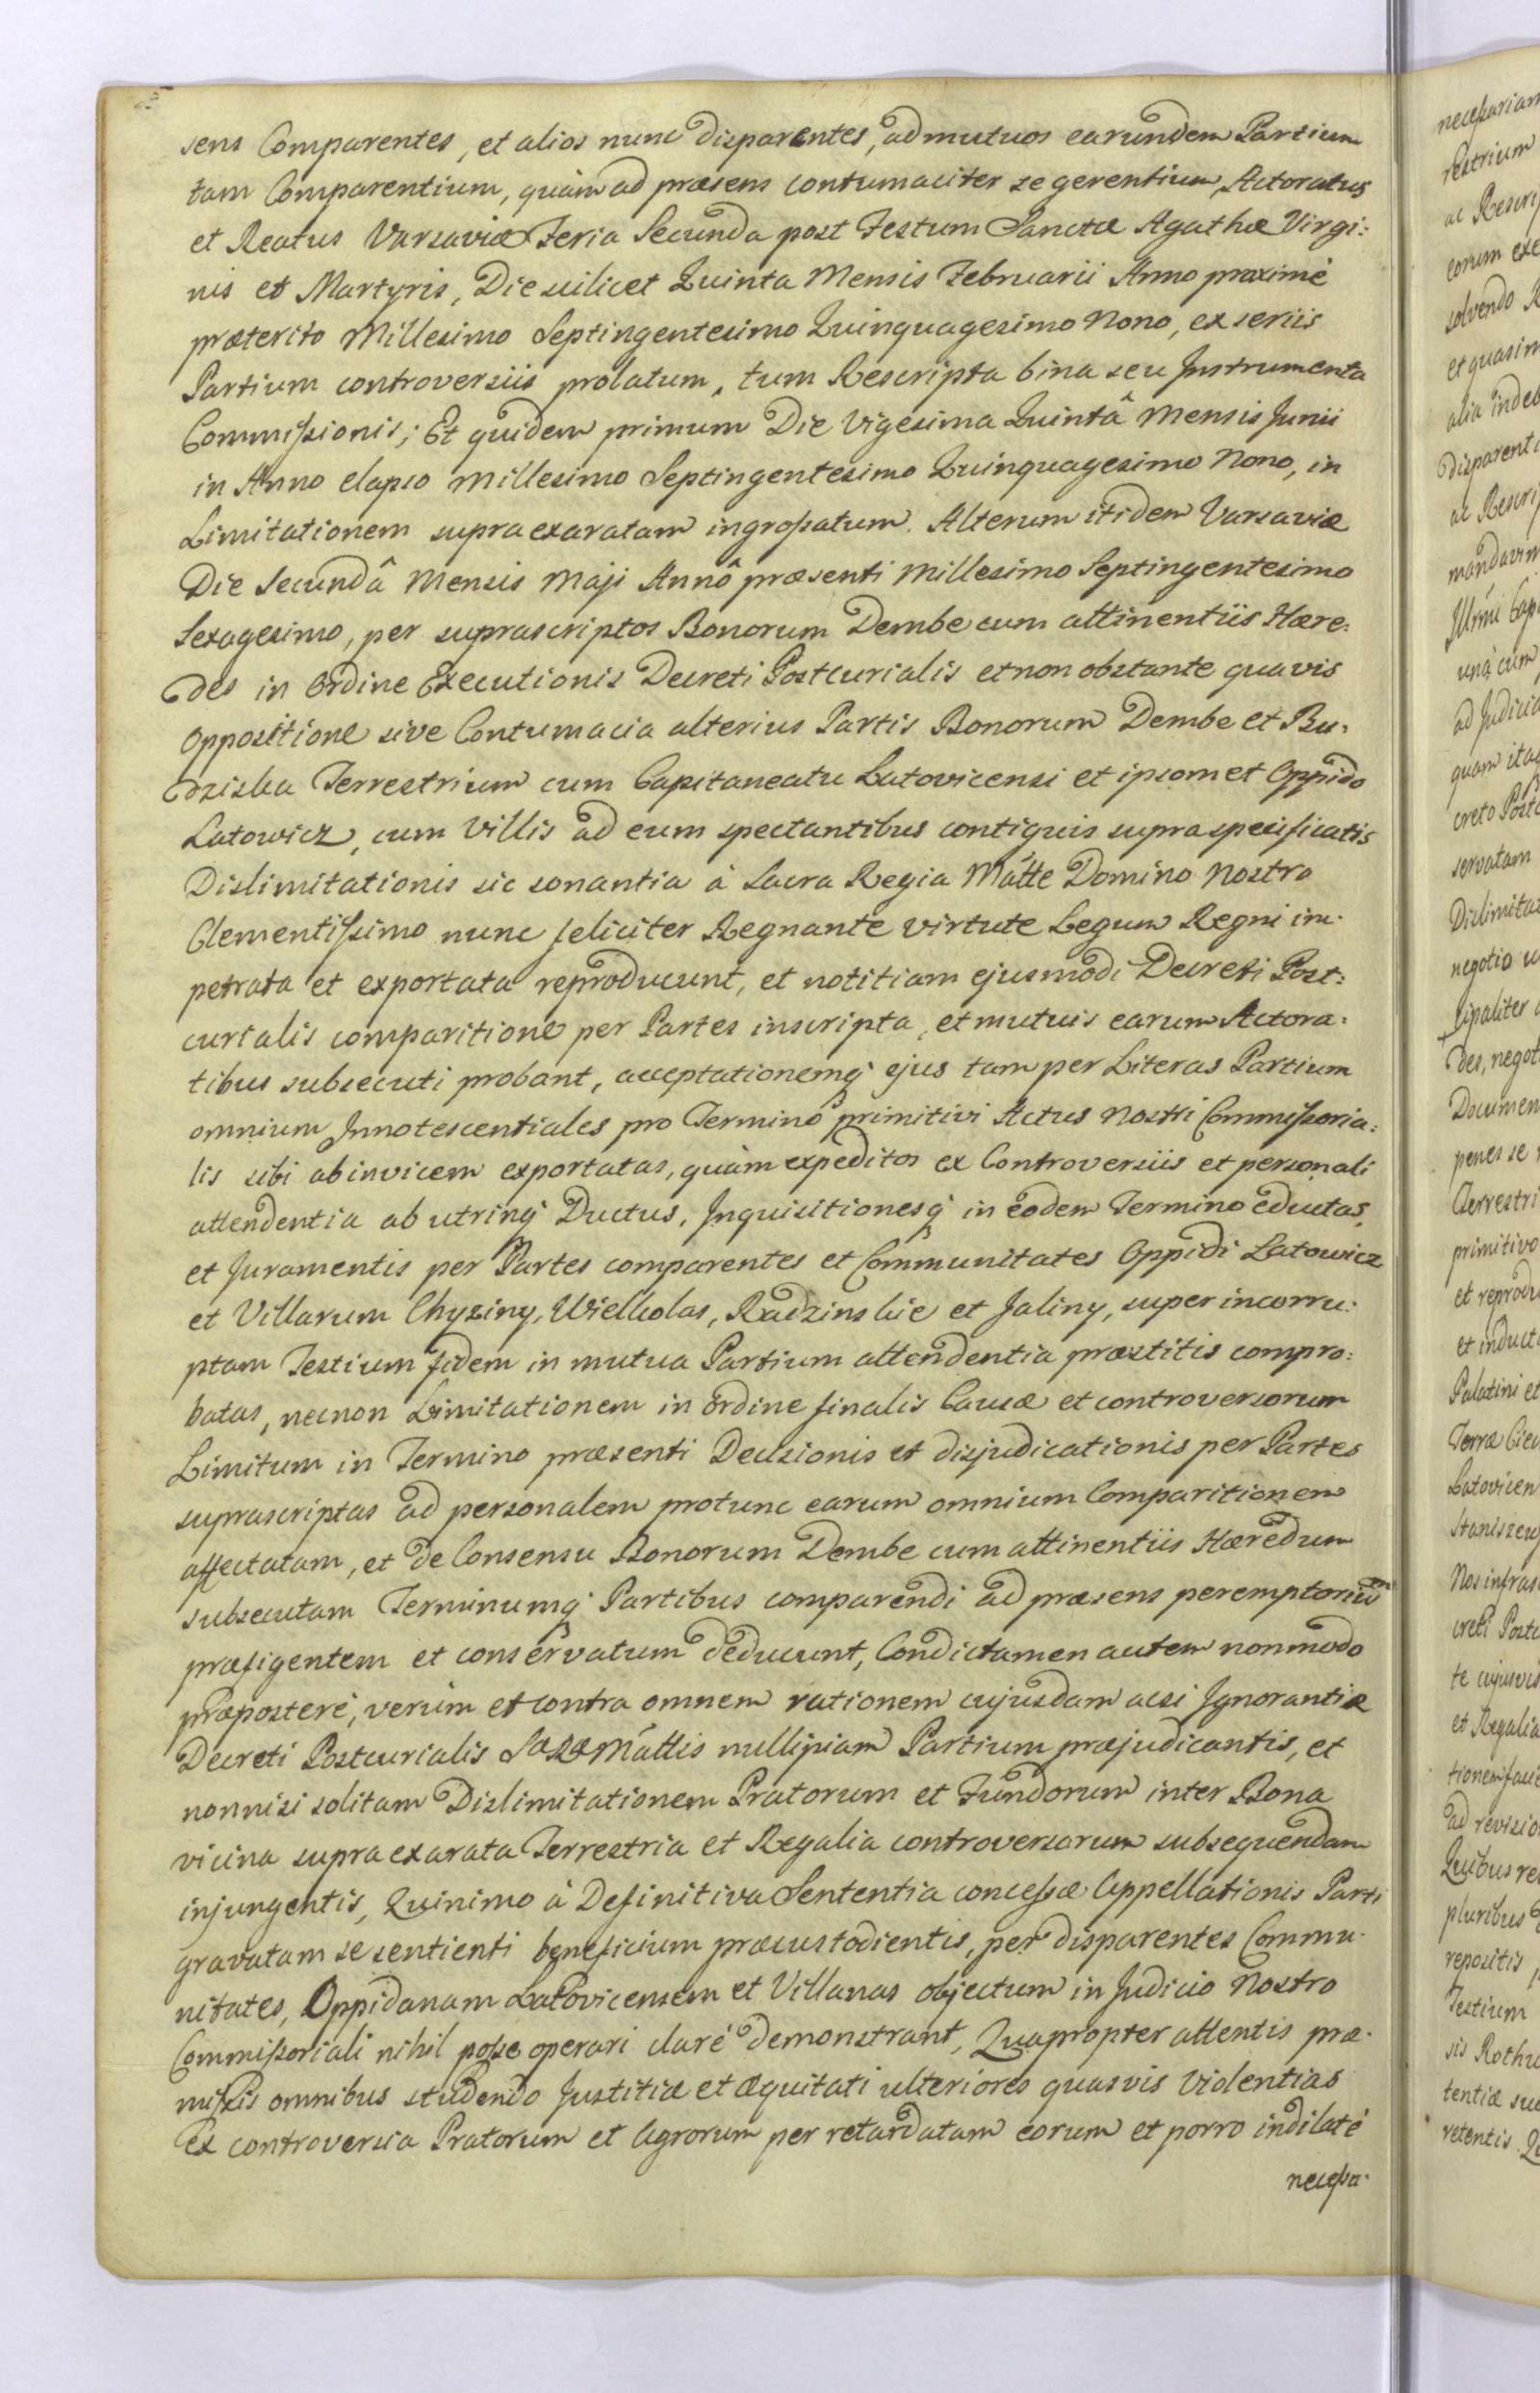 sens Comparentes, et alios nunc disparentes, ad mutuos earundem Partium
tam Comparentium, quàm ad præsens contumaciter se gerentium, Actoratus
et Reatus Varsaviæ Feria Secunda post Festum Sanctæ Agathæ Virgi:
nis et Martyris, Die scilicet Quinta Mensis Februarii Anno proximè
præterito Millesimo Septingentesimo Quinquagesimo Nono, ex seriis
Partium controversiis prolatum, tum Rescripta bina seu Instrumenta
Commissionis; Et quidem primum Die Vigesima Quintâ Mensis Junii
in Anno elapso Millesimo Septingentesimo Quinquagesimo Nono, in
Limitationem supra exaratam ingrossatum. Alterum itidem Varsaviæ
Die Secundâ Mensis Maji Annô præsenti Millesimo Septingentesimo
Sexagesimo, per suprascriptos Bonorum Dembe cum attinentiis Hære:
des in Ordine Executionis Decreti Postcurialis et non obstante quavis
Oppositione sive Contumacia alterius Partis Bonorum Dembe et Bu:
dziska Terrestrium cum Capitaneatu Latovicensi et ipsomet Oppido
Latowicz, cum Villis ad eum spectantibus contiguis supra specificatis
Dislimitationis sic sonantia à Sacra Regia Mátte Domino Nostro
Clementissimo nunc feliciter Regnante virtute Legum Regni im:
petrata et exportata reproducunt, et notitiam ejusmodi Decreti Post:
curialis comparitione per Partes inscripta, et mutuis earum Actora:
tibus subsecuti probant, acceptationemq; ejus tam per Literas Partium
omnium Innotescentiales pro Termino primitivi Actus Nostri Commissoria:
lis sibi abinvicem exportatas, quàm expeditos ex Controversiis et personali
attendentia ab utrinq; Ductus, Inquisitionesq; in eodem Termino eductas,
et Juramentis per Partes comparentes et Communitates Oppidi Latowicz
et Villarum Chyziny, Wielkolas, Radzinskie et Jaliny, super incorru:
ptam Testium fidem in mutua Partium attendentia præstitis compro:
batas, necnon Limitationem in Ordine finalis Causæ et controversorum
Limitum in Termino præsenti Decisionis et disjudicationis per Partes
suprascriptas ad personalem protunc earum omnium Comparitionem
affectatam, et de Consensu Bonorum Dembe cum attinentiis Hæredum
subsecutam Terminumq; Partibus comparendi ad præsens peremptoriũ
præfigentem et conservatum deducunt, Condictamen autem nonmodo
præposterè, verùm et contra omnem rationem cujusdam acsi Ignorantiæ
Decreti Postcurialis Sæ Ræ Máttis nullipiam Partium præjudicantis, et
nonnisi solitam Dislimitationem Pratorum et Fundorum inter Bona
vicina supra exarata Terrestria et Regalia controversorum subsequendam
injungentis, Quinimo à Definitiva Sententia concessæ Appellationis Parti
gravatam se sentienti beneficium præcustodientis, per disparentes Commu:
nitates, Oppidanam Latovicensem et Villanas objectum in Judicio Nostro
Commissoriali nihil posse operari clarè demonstrant, Quapropter attentis præ:
missis omnibus studendo Justitiæ et Æquitati ulteriores quasvis Violentias
Ex controversia Pratorum et Agrorum per retardatam eorum et porro indilatè
necessa:
necessariam
ac Rescrip
eorum exe
solvendo
alia indeb
disparenti
ac Rescrip
mandavim
Illrmi Cap
unà cum
ad Judicia
quam itaq
creto Postc
servatam
Dislimitat
negotio
des, negot
Documen
penes se
Terrestri
primitivo
et reprodu
et induct
Palatini et
Terræ
Latovicen
Staniszew
Nos infras
creti Postc
te cujusvis
et Regalia
ad revisio
Quibus
pluribus
repositis
Testium
sis Rothu
tentiæ
retentis